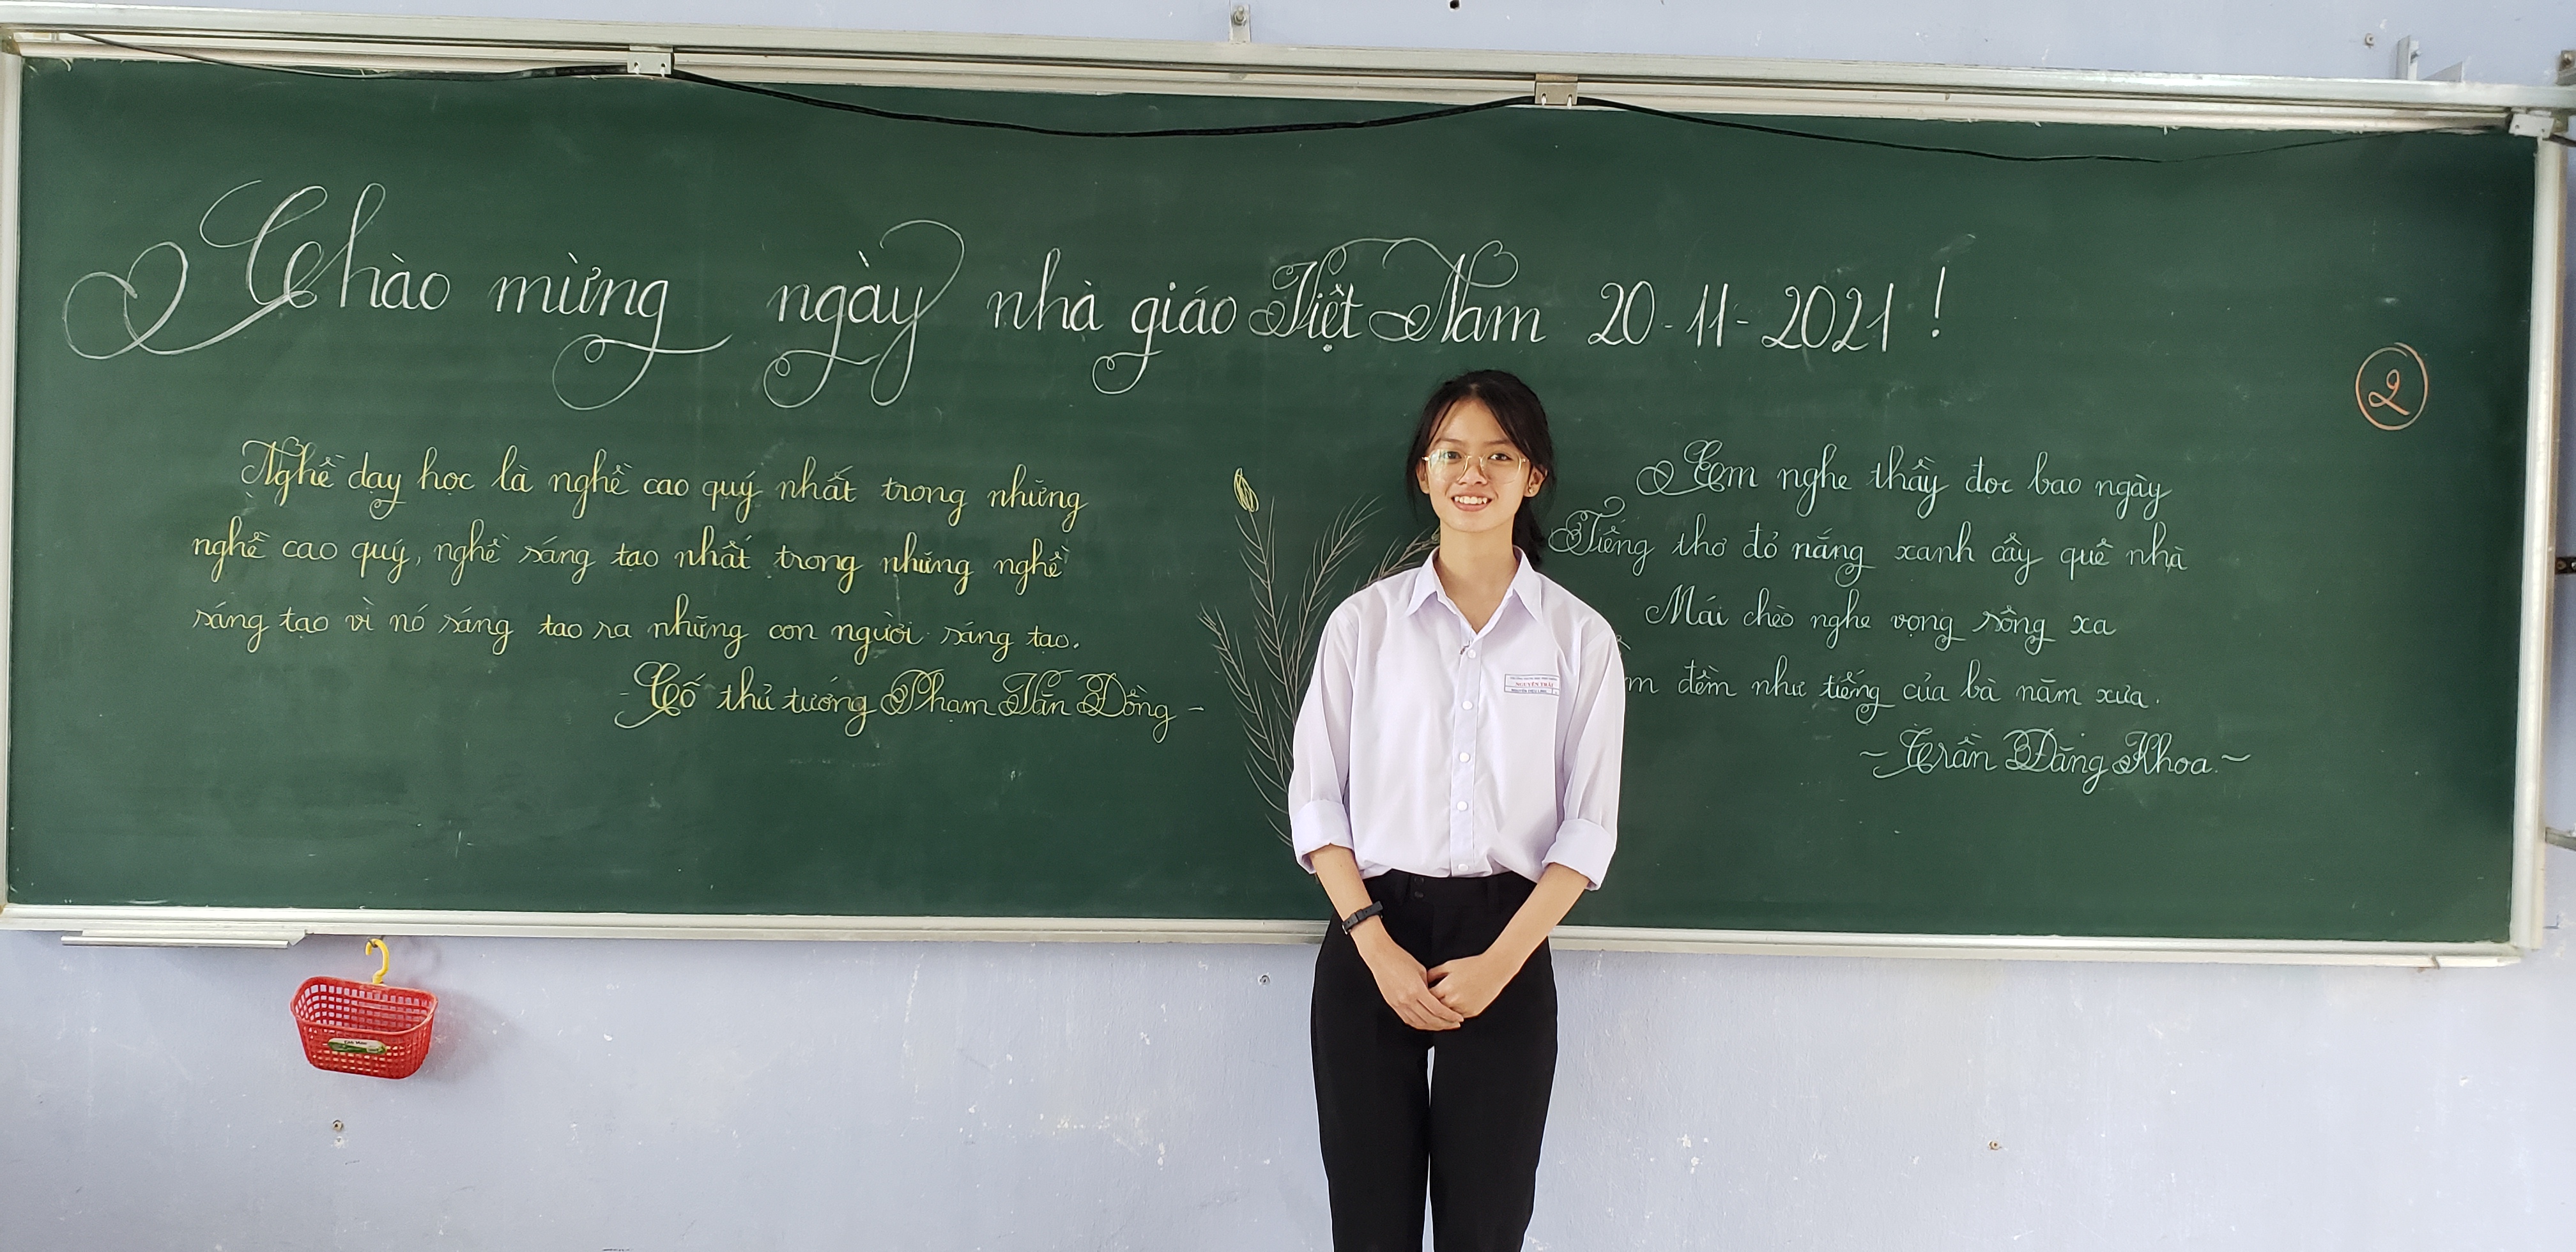 Chào mừng ngày nhà giáo Việt Nam 20-11-2021!
2
Nghề dạy học là nghề cao quý nhất trong những
nghề cao quý, nghề sáng tạo nhất trong những nghề
sáng tạo vì nó sáng tạo ra những con người sáng tạo.
- Cố thủ tướng Phạm Văn Đồng -
Em nghe thầy đọc bao ngày
Tiếng thơ đỏ nắng xanh cây quê nhà
Mái chèo nghe vọng sông xa
m đềm như tiếng của bà năm xưa.
~ Trần Đăng Khoa ~
NGUYỄN TRÃI